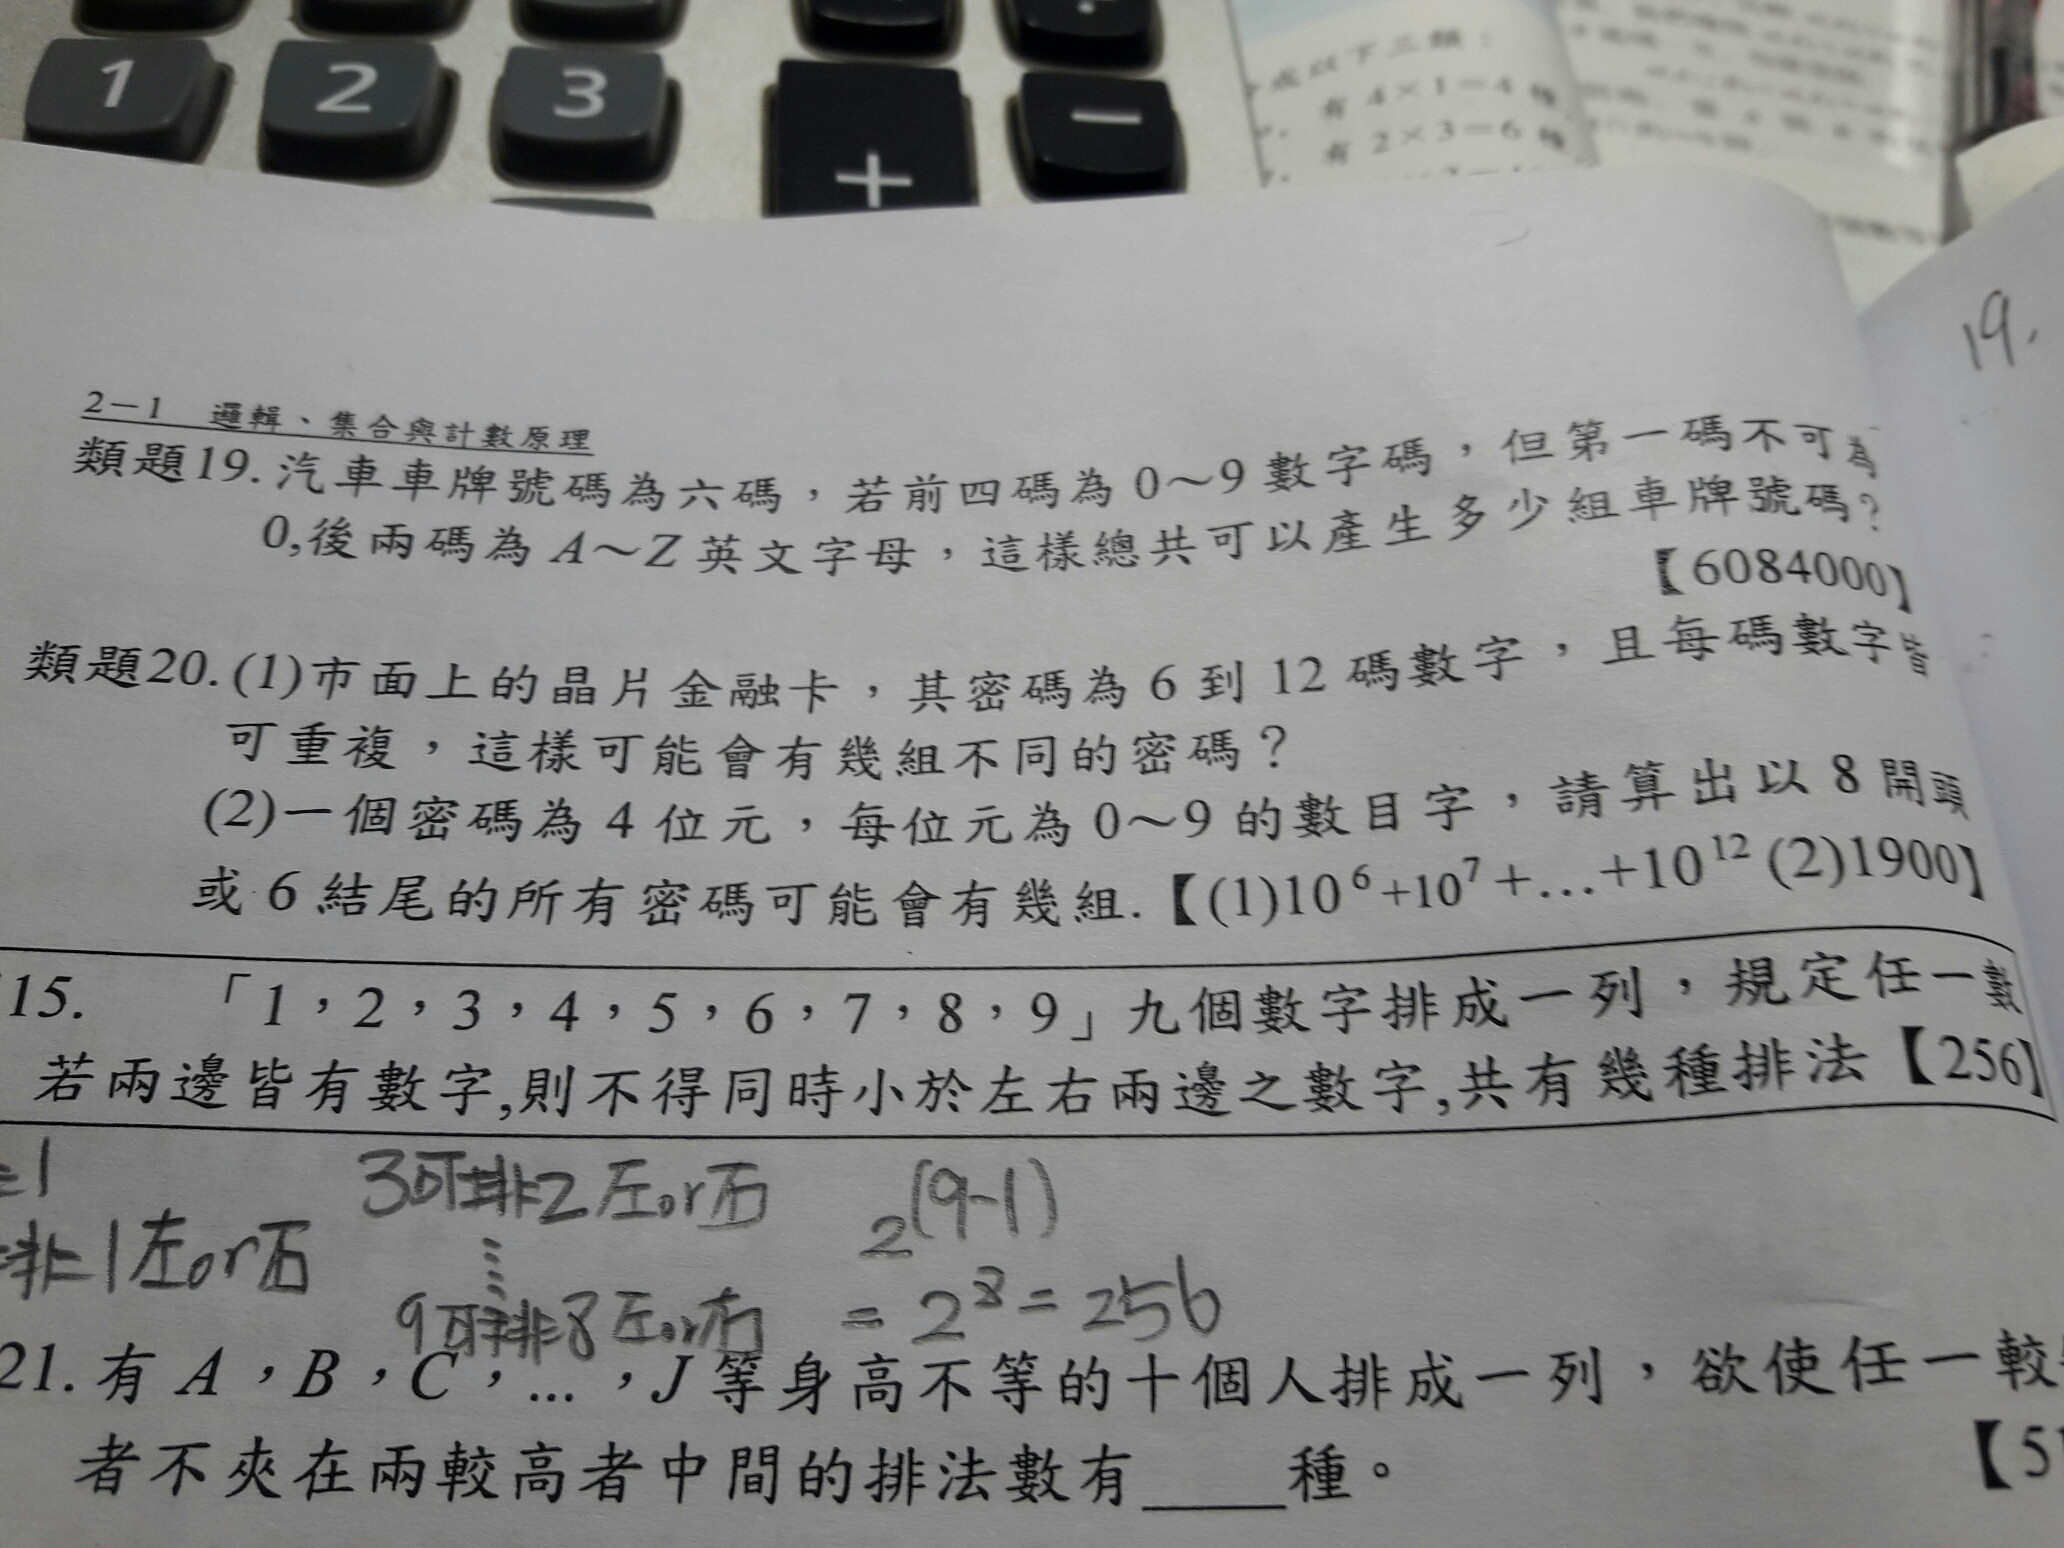 1
2
3
+
−
成以下三類：
有 4×1=4 種
有 2×3=6 種
19.
2－1 邏輯、集合與計數原理
類題19. 汽車車牌號碼為六碼，若前四碼為 0～9 數字碼，但第一碼不可為
0,後兩碼為 A～Z 英文字母，這樣總共可以產生多少組車牌號碼？
【6084000】
類題20. (1)市面上的晶片金融卡，其密碼為 6 到 12 碼數字，且每碼數字皆
可重複，這樣可能會有幾組不同的密碼？
(2)一個密碼為 4 位元，每位元為 0～9 的數目字，請算出以 8 開頭
或 6 結尾的所有密碼可能會有幾組.【(1)10⁶+10⁷+…+10¹² (2)1900】
15. 「1，2，3，4，5，6，7，8，9」九個數字排成一列，規定任一數
若兩邊皆有數字,則不得同時小於左右兩邊之數字,共有幾種排法【256】
=1
排1左or右
3可排2左or右
⋮
9可排8左or右
2^(9-1)
=2⁸=256
21. 有 A，B，C，…，J 等身高不等的十個人排成一列，欲使任一較
者不夾在兩較高者中間的排法數有____種。
【51